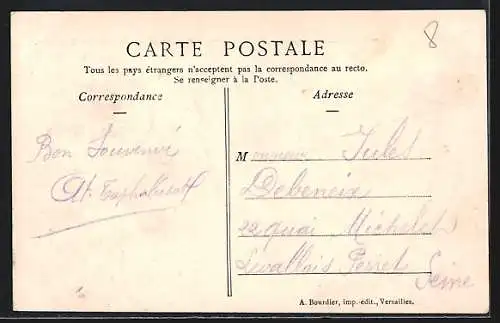 8
CARTE POSTALE
Tous les pays étrangers n'acceptent pas la correspondance au recto.
Se renseigner à la Poste.
Correspondance
Adresse
Bon Souvenir
Monsieur Jules
Debeneix
22 quai Michelet
Levallois Perret
Seine
A. Bourdier, imp.-edit., Versailles.